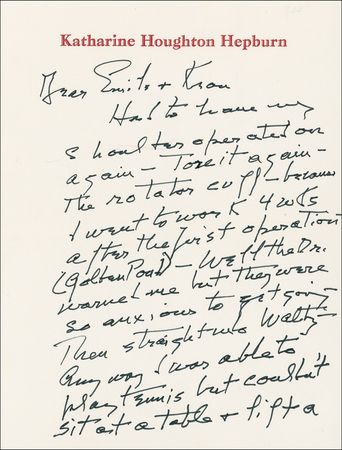 Katharine Houghton Hepburn
Dear Emily +
Had to have my
shoulder operated on
again – Tore it again –
The rotator cuff – because
I went to work 4 wks
after the first operation
(Golden Pond) – Well the Dr.
warned me but they were
so anxious to get going –
Then straight into Waltz –
Anyway I was able to
play tennis but couldn't
sit at a table + lift a